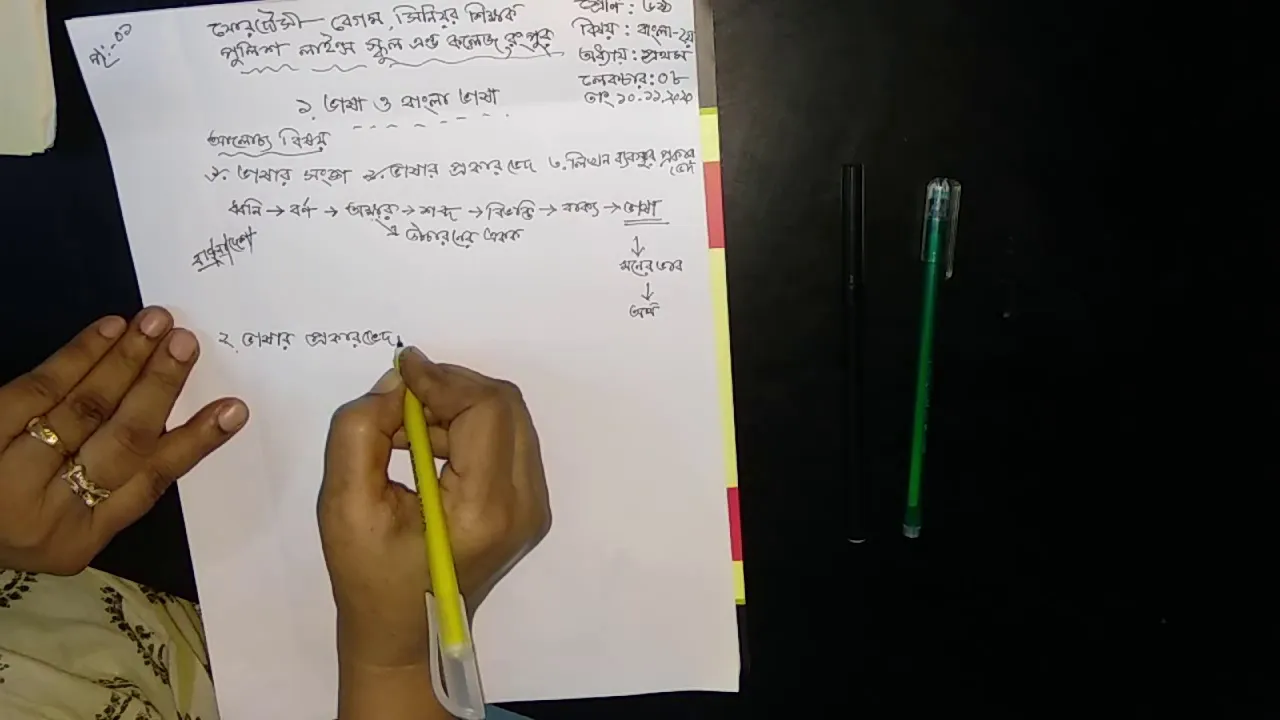 পৃ:-০১
বেগম, সিনিয়র শিক্ষক
পুলিশ লাইন্স স্কুল এন্ড কলেজ রংপুর
শ্রেণি : ৬ষ্ঠ
বিষয় : বাংলা-২য়
অধ্যায় : প্রথম
লেকচার: ০৮
তাং ১০.১১.২০২০
১. ভাষা ও বাংলা ভাষা
আলোচ্য বিষয়
১. ভাষার সংজ্ঞা ২. ভাষার প্রকারভেদ ৩. লিখন ব্যবস্থার প্রকারভেদ
ধ্বনি → বর্ণ → অক্ষর → শব্দ → বিভক্তি → বাক্য → ভাষা
এ উচ্চারনের একক
↓
মনের ভাব
↓
অর্থ
২. ভাষার প্রকারভেদ